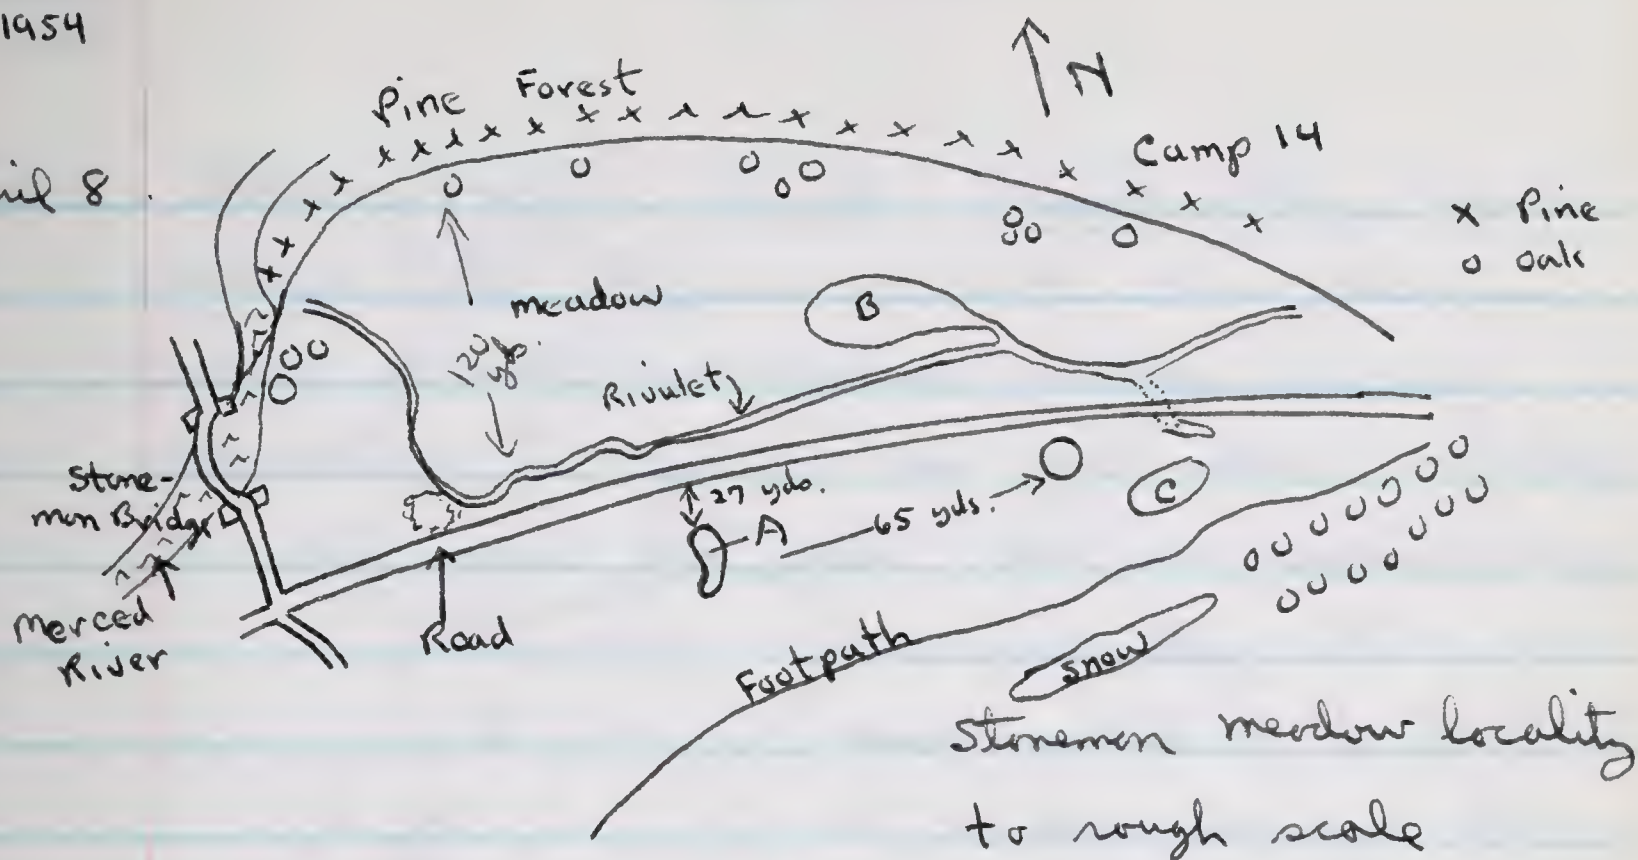 1954
N
Pine Forest
Camp 14
8
x Pine
o oak
meadow
B
120 yds.
Rivulet
Stone-
man Bridge
27 yds.
A
65 yds.
C
Merced
River
Road
Footpath
Snow
Stoneman meadow locality
to rough scale